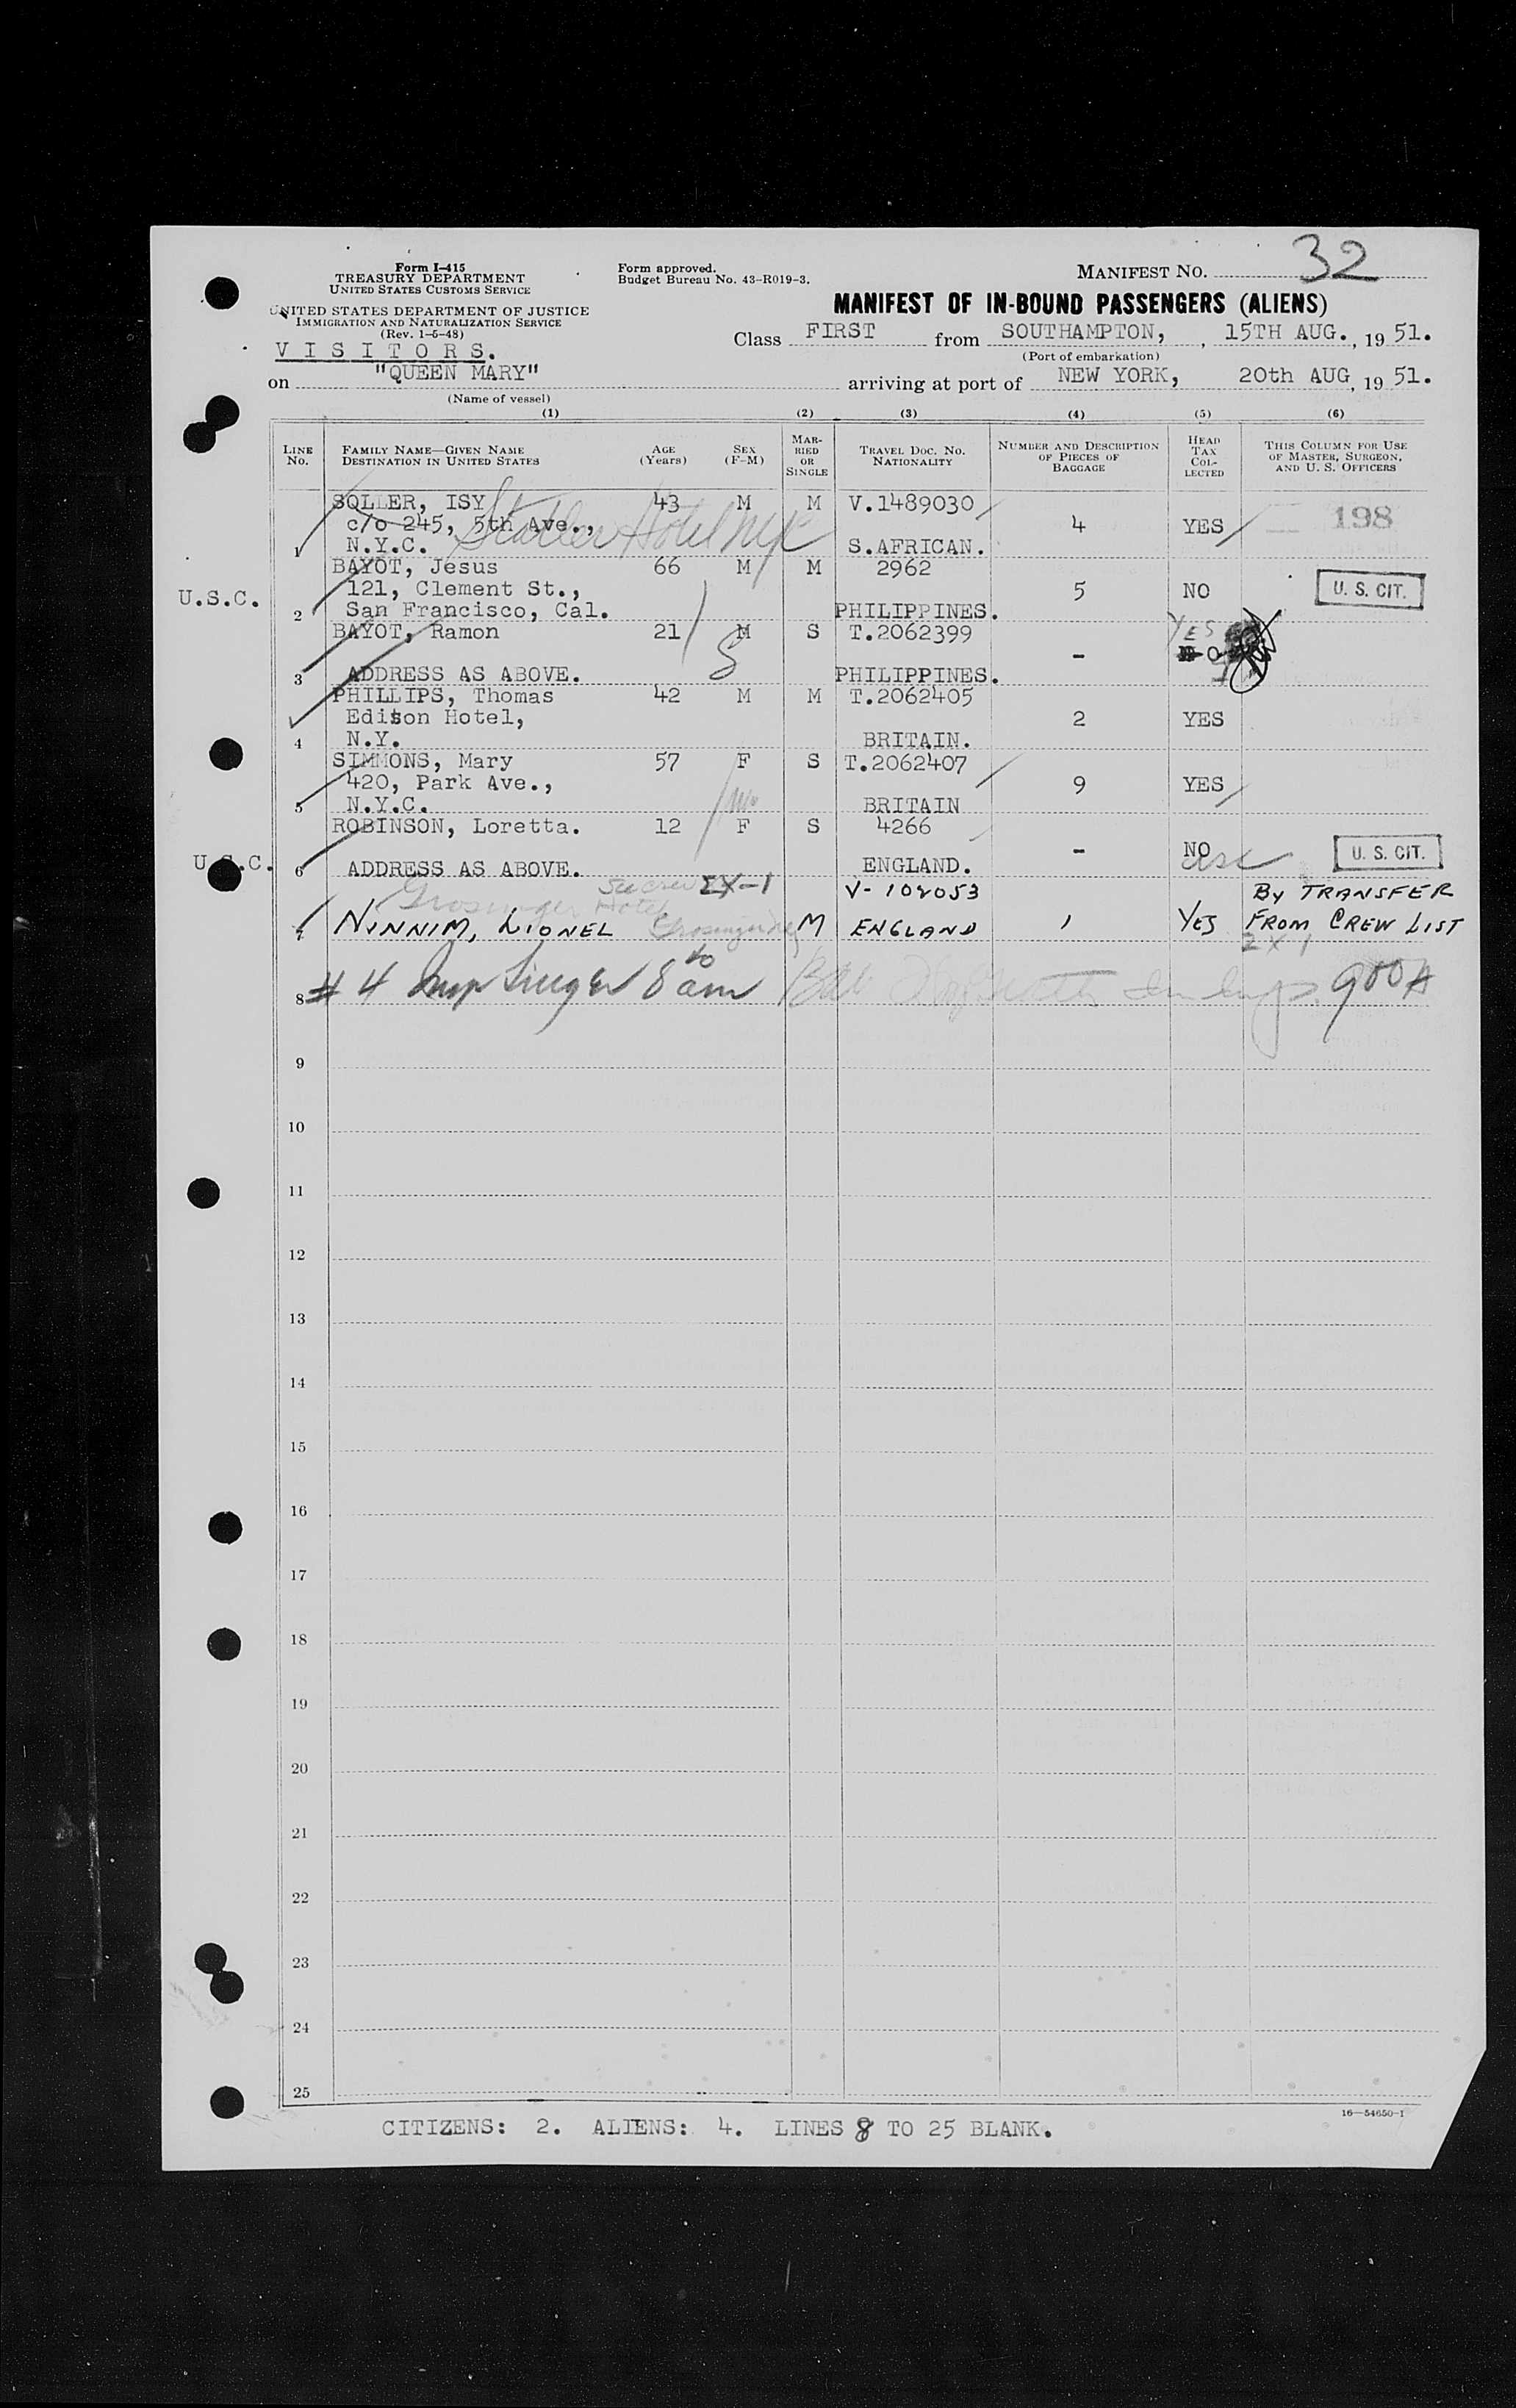 Form I-415
TREASURY DEPARTMENT
UNITED STATES CUSTOMS SERVICE
UNITED STATES DEPARTMENT OF JUSTICE
IMMIGRATION AND NATURALIZATION SERVICE
(Rev. 1-5-48)
Form approved.
Budget Bureau No. 43-R019-3.
MANIFEST NO. 32
MANIFEST OF IN-BOUND PASSENGERS (ALIENS)
Class FIRST from SOUTHAMPTON, , 15TH AUG., 19 51.
(Port of embarkation)
V I S I T O R S.
on "QUEEN MARY" arriving at port of NEW YORK, 20th AUG, 19 51.
(Name of vessel)
(1) (2) (3) (4) (5) (6)
LINE No. FAMILY NAME—GIVEN NAME DESTINATION IN UNITED STATES AGE (Years) SEX (F-M) MARRIED OR SINGLE TRAVEL DOC. NO. NATIONALITY NUMBER AND DESCRIPTION OF PIECES OF BAGGAGE HEAD TAX COLLECTED THIS COLUMN FOR USE OF MASTER, SURGEON, AND U. S. OFFICERS
SOLLER, ISY 43 M M V.1489030
c/o 245, 5th Ave., Statler Hotel NYC 4 YES 198
1 N.Y.C. S.AFRICAN.
BAYOT, Jesus 66 M M 2962
U.S.C. 121, Clement St., 5 NO U. S. CIT.
2 San Francisco, Cal. PHILIPPINES.
BAYOT, Ramon 21 M S T.2062399 YES
- NO
3 ADDRESS AS ABOVE. PHILIPPINES.
PHILLIPS, Thomas 42 M M T.2062405
Edison Hotel, 2 YES
4 N.Y. BRITAIN.
SIMMONS, Mary 57 F S T.2062407
420, Park Ave., 9 YES
5 N.Y.C. BRITAIN
ROBINSON, Loretta. 12 F S 4266
- NO U. S. CIT.
U.S.C. 6 ADDRESS AS ABOVE. ENGLAND.
Grosinger Hotel EX-1 V-108053 BY TRANSFER
7 NINNIM, LIONEL M ENGLAND 1 YES FROM CREW LIST
2X1
8 # 4 Insp Singer 8 am 900A
9
10
11
12
13
14
15
16
17
18
19
20
21
22
23
24
25
16—54650-1
CITIZENS: 2. ALIENS: 4. LINES 8 TO 25 BLANK.